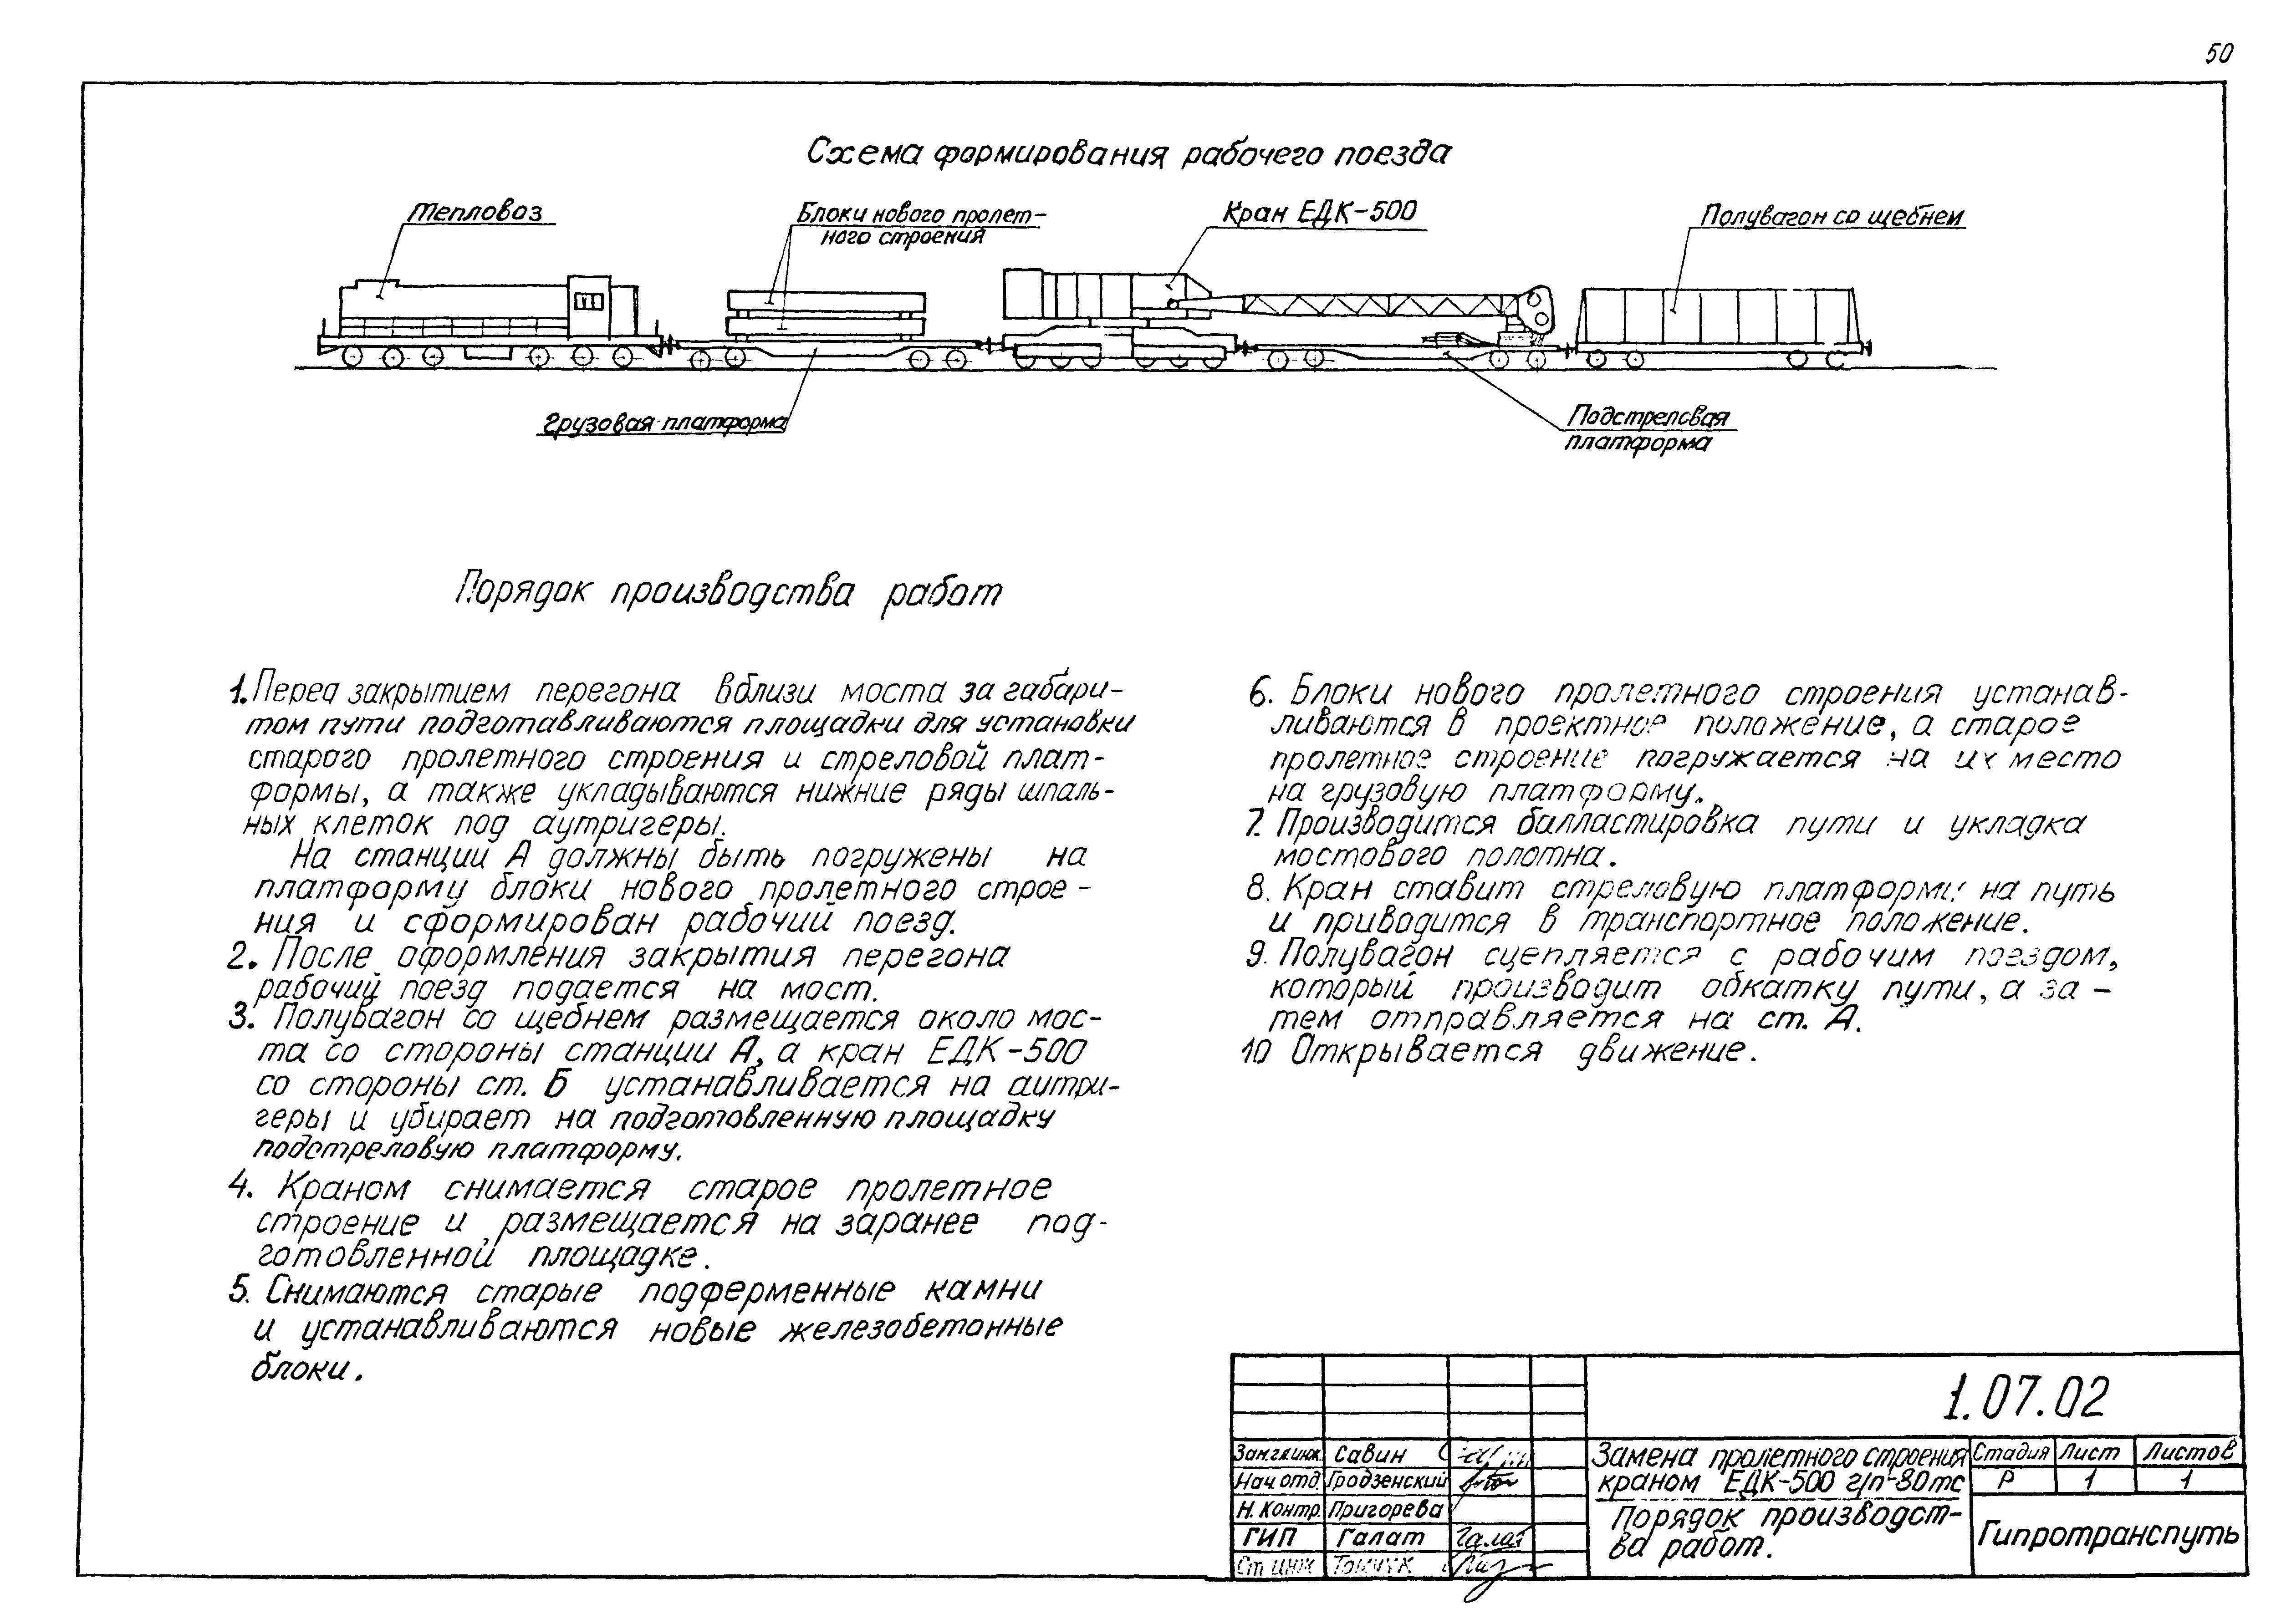 50
Схема формирования рабочего поезда
Тепловоз
Блоки нового пролет-
ного строения
Кран ЕДК-500
Полувагон со щебнем
Грузовая платформа
Подстреловая
платформа
Порядок производства работ
1. Перед закрытием перегона вблизи моста за габари-
том пути подготавливаются площадки для установки
старого пролетного строения и стреловой плат-
формы, а также укладываются нижние ряды шпаль-
ных клеток под аутригеры.
На станции А должны быть погружены на
платформу блоки нового пролетного строе-
ния и сформирован рабочий поезд.
2. После оформления закрытия перегона
рабочий поезд подается на мост.
3. Полувагон со щебнем размещается около мос-
та со стороны станции А, а кран ЕДК-500
со стороны ст. Б устанавливается на аутри-
геры и убирает на подготовленную площадку
подстреловую платформу.
4. Краном снимается старое пролетное
строение и размещается на заранее под-
готовленной площадке.
5. Снимаются старые подферменные камни
и устанавливаются новые железобетонные
блоки.
6. Блоки нового пролетного строения устанав-
ливаются в проектное положение, а старое
пролетное строение погружается на их место
на грузовую платформу.
7. Производится балластировка пути и укладка
мостового полотна.
8. Кран ставит стреловую платформу на путь
и приводится в транспортное положение.
9. Полувагон сцепляется с рабочим поездом,
который производит обкатку пути, а за-
тем отправляется на ст. А.
10 Открывается движение.
1.07.02
Зам.гл.инж. Савин
Нач.отд. Гродзенский
Н. Контр. Пригорева
ГИП Галат Галат
Ст инж
Замена пролетного строения
краном ЕДК-500 г/п-80тс
Порядок производст-
ва работ.
Стадия Лист Листов
Р 1 1
Гипротранспуть